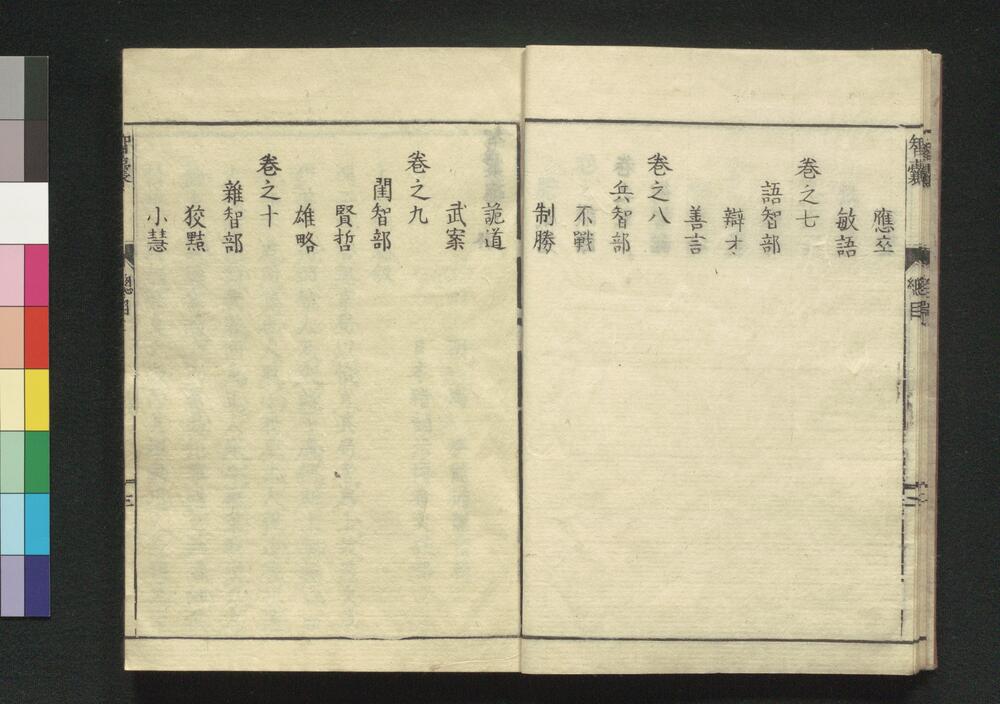 智囊
總目
應卒
敏語
卷之七
語智部
辯才
善言
卷之八
兵智部
不戰
制勝
詭道
武案
卷之九
閨智部
賢哲
雄略
卷之十
雜智部
狡黠
小慧
智囊
總目
三